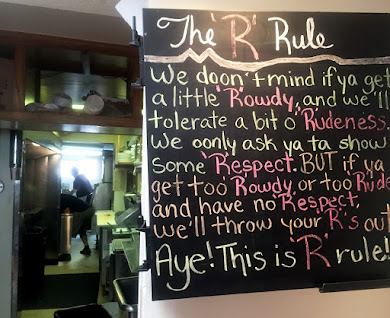 The 'R' Rule
We doon't mind if ya get
a little 'R'owdy, and we'll
tolerate a bit o' 'R'udeness.
We oonly ask ya ta show
some 'R'espect. BUT if ya
get too 'R'owdy or too 'R'ude
and have no 'R'espect,
we'll throw your 'R's out
Aye! This is 'R' rule!